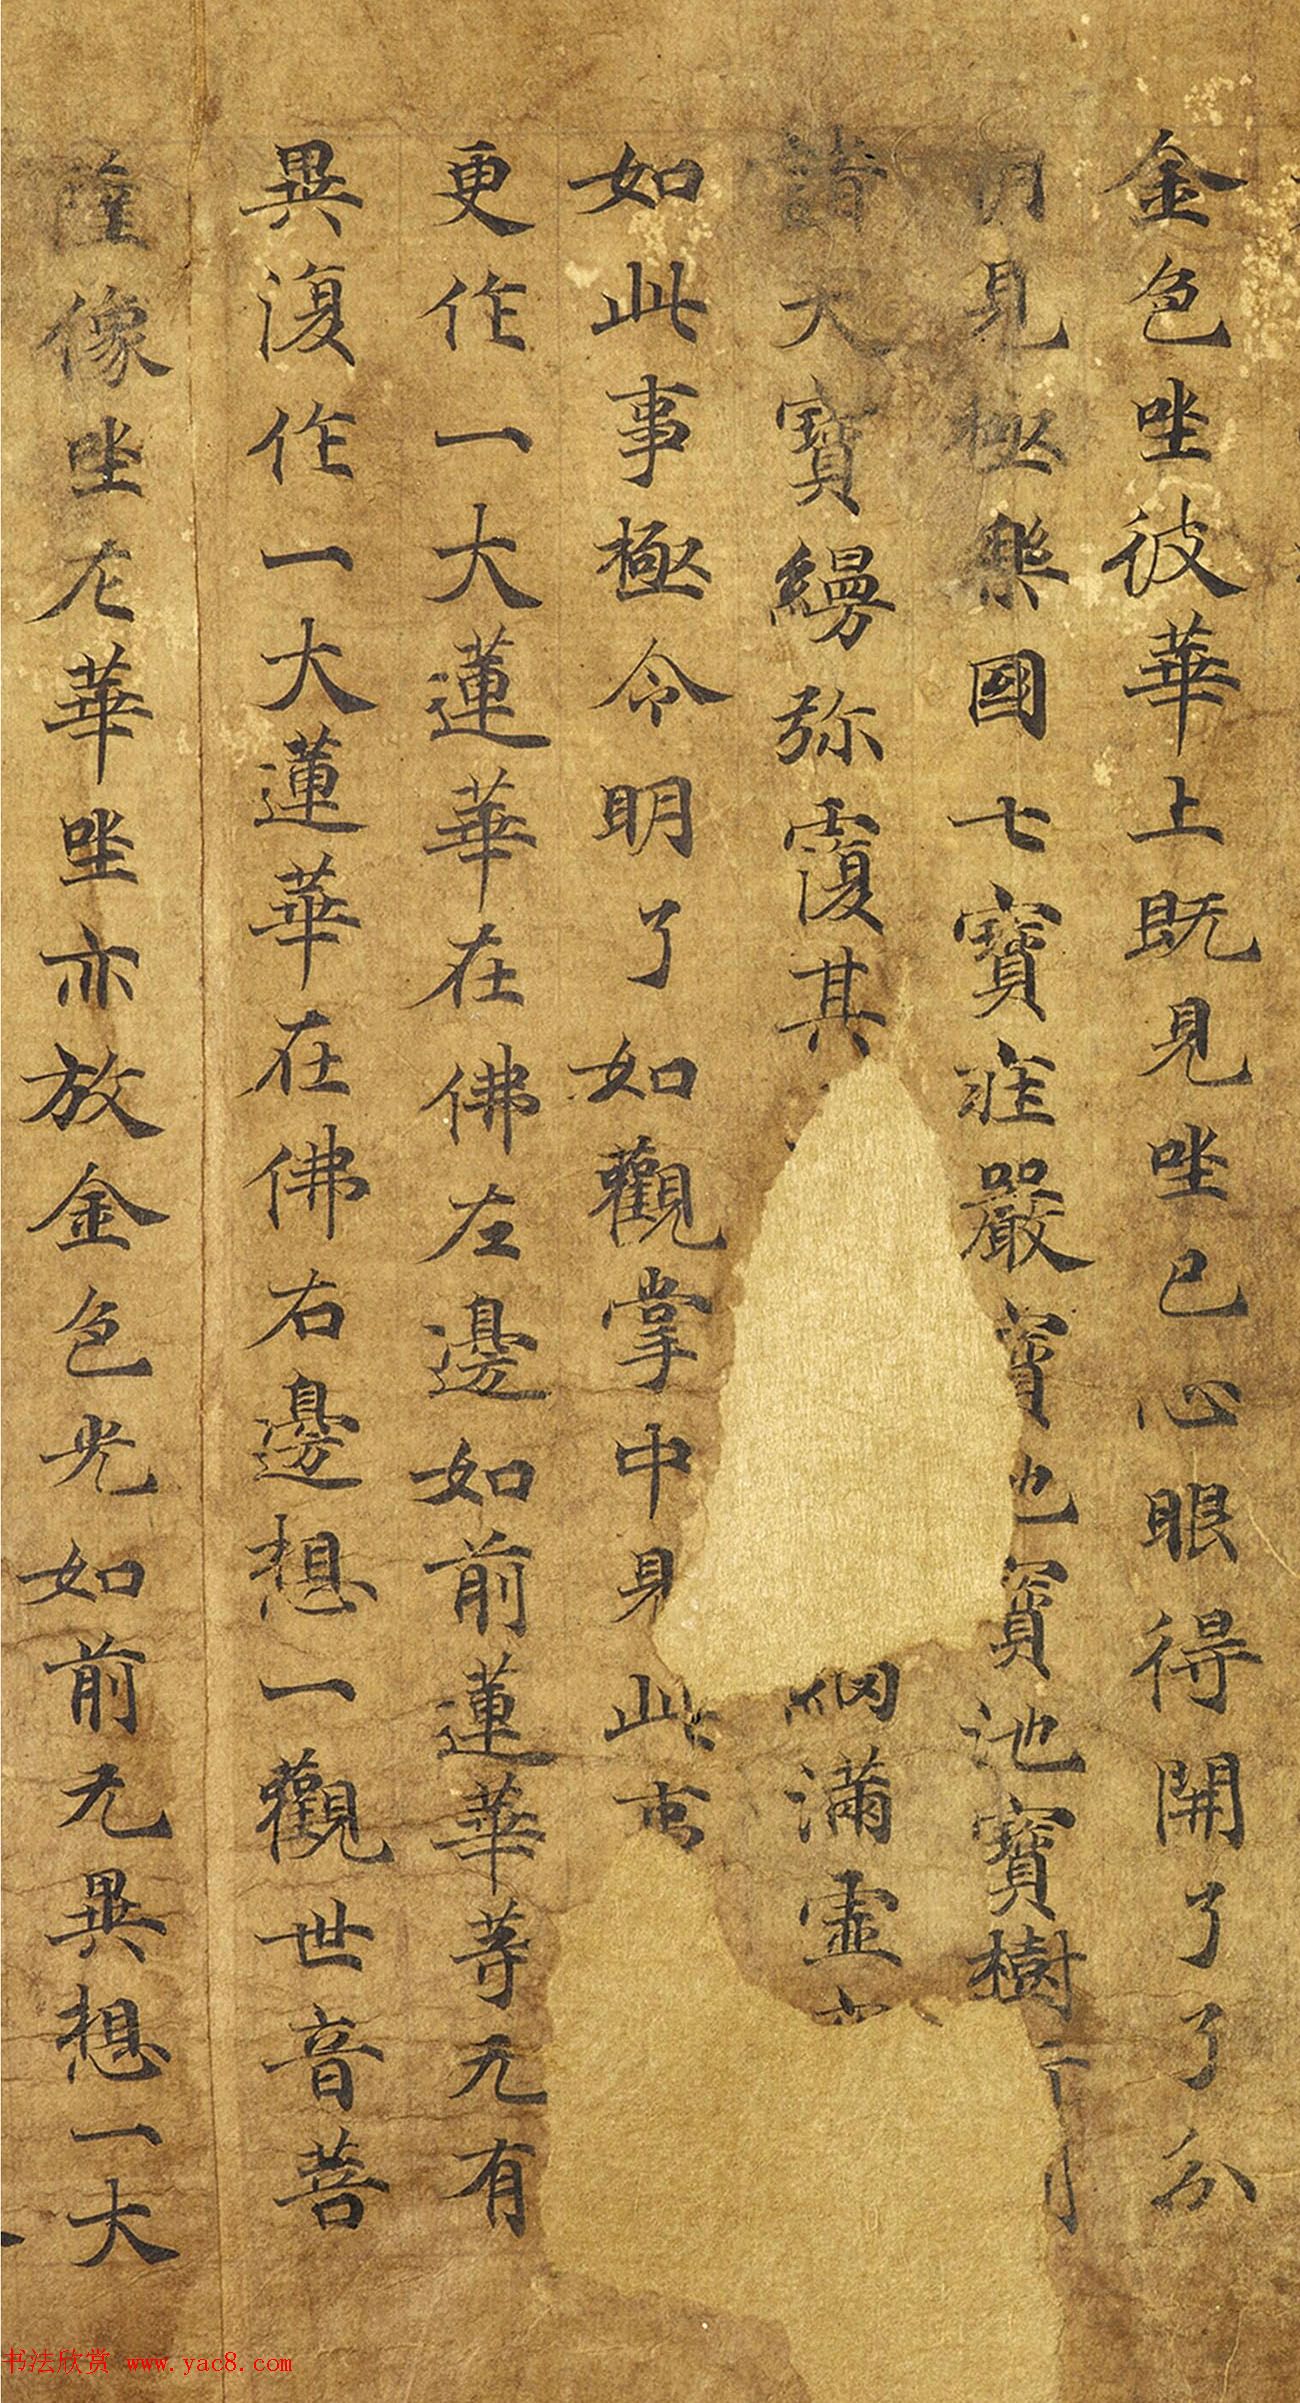 金色坐彼華上既見坐已心眼得開了了分
明見極樂國七寶莊嚴寶地寶池寶樹行
諸天寶縵弥覆其網滿虛
如此事極令明了如觀掌中見此事
更作一大蓮華在佛左邊如前蓮華等无有
異復作一大蓮華在佛右邊想一觀世音菩
薩像坐左華坐亦放金色光如前无異想一大
书法欣赏 www.yac8.com